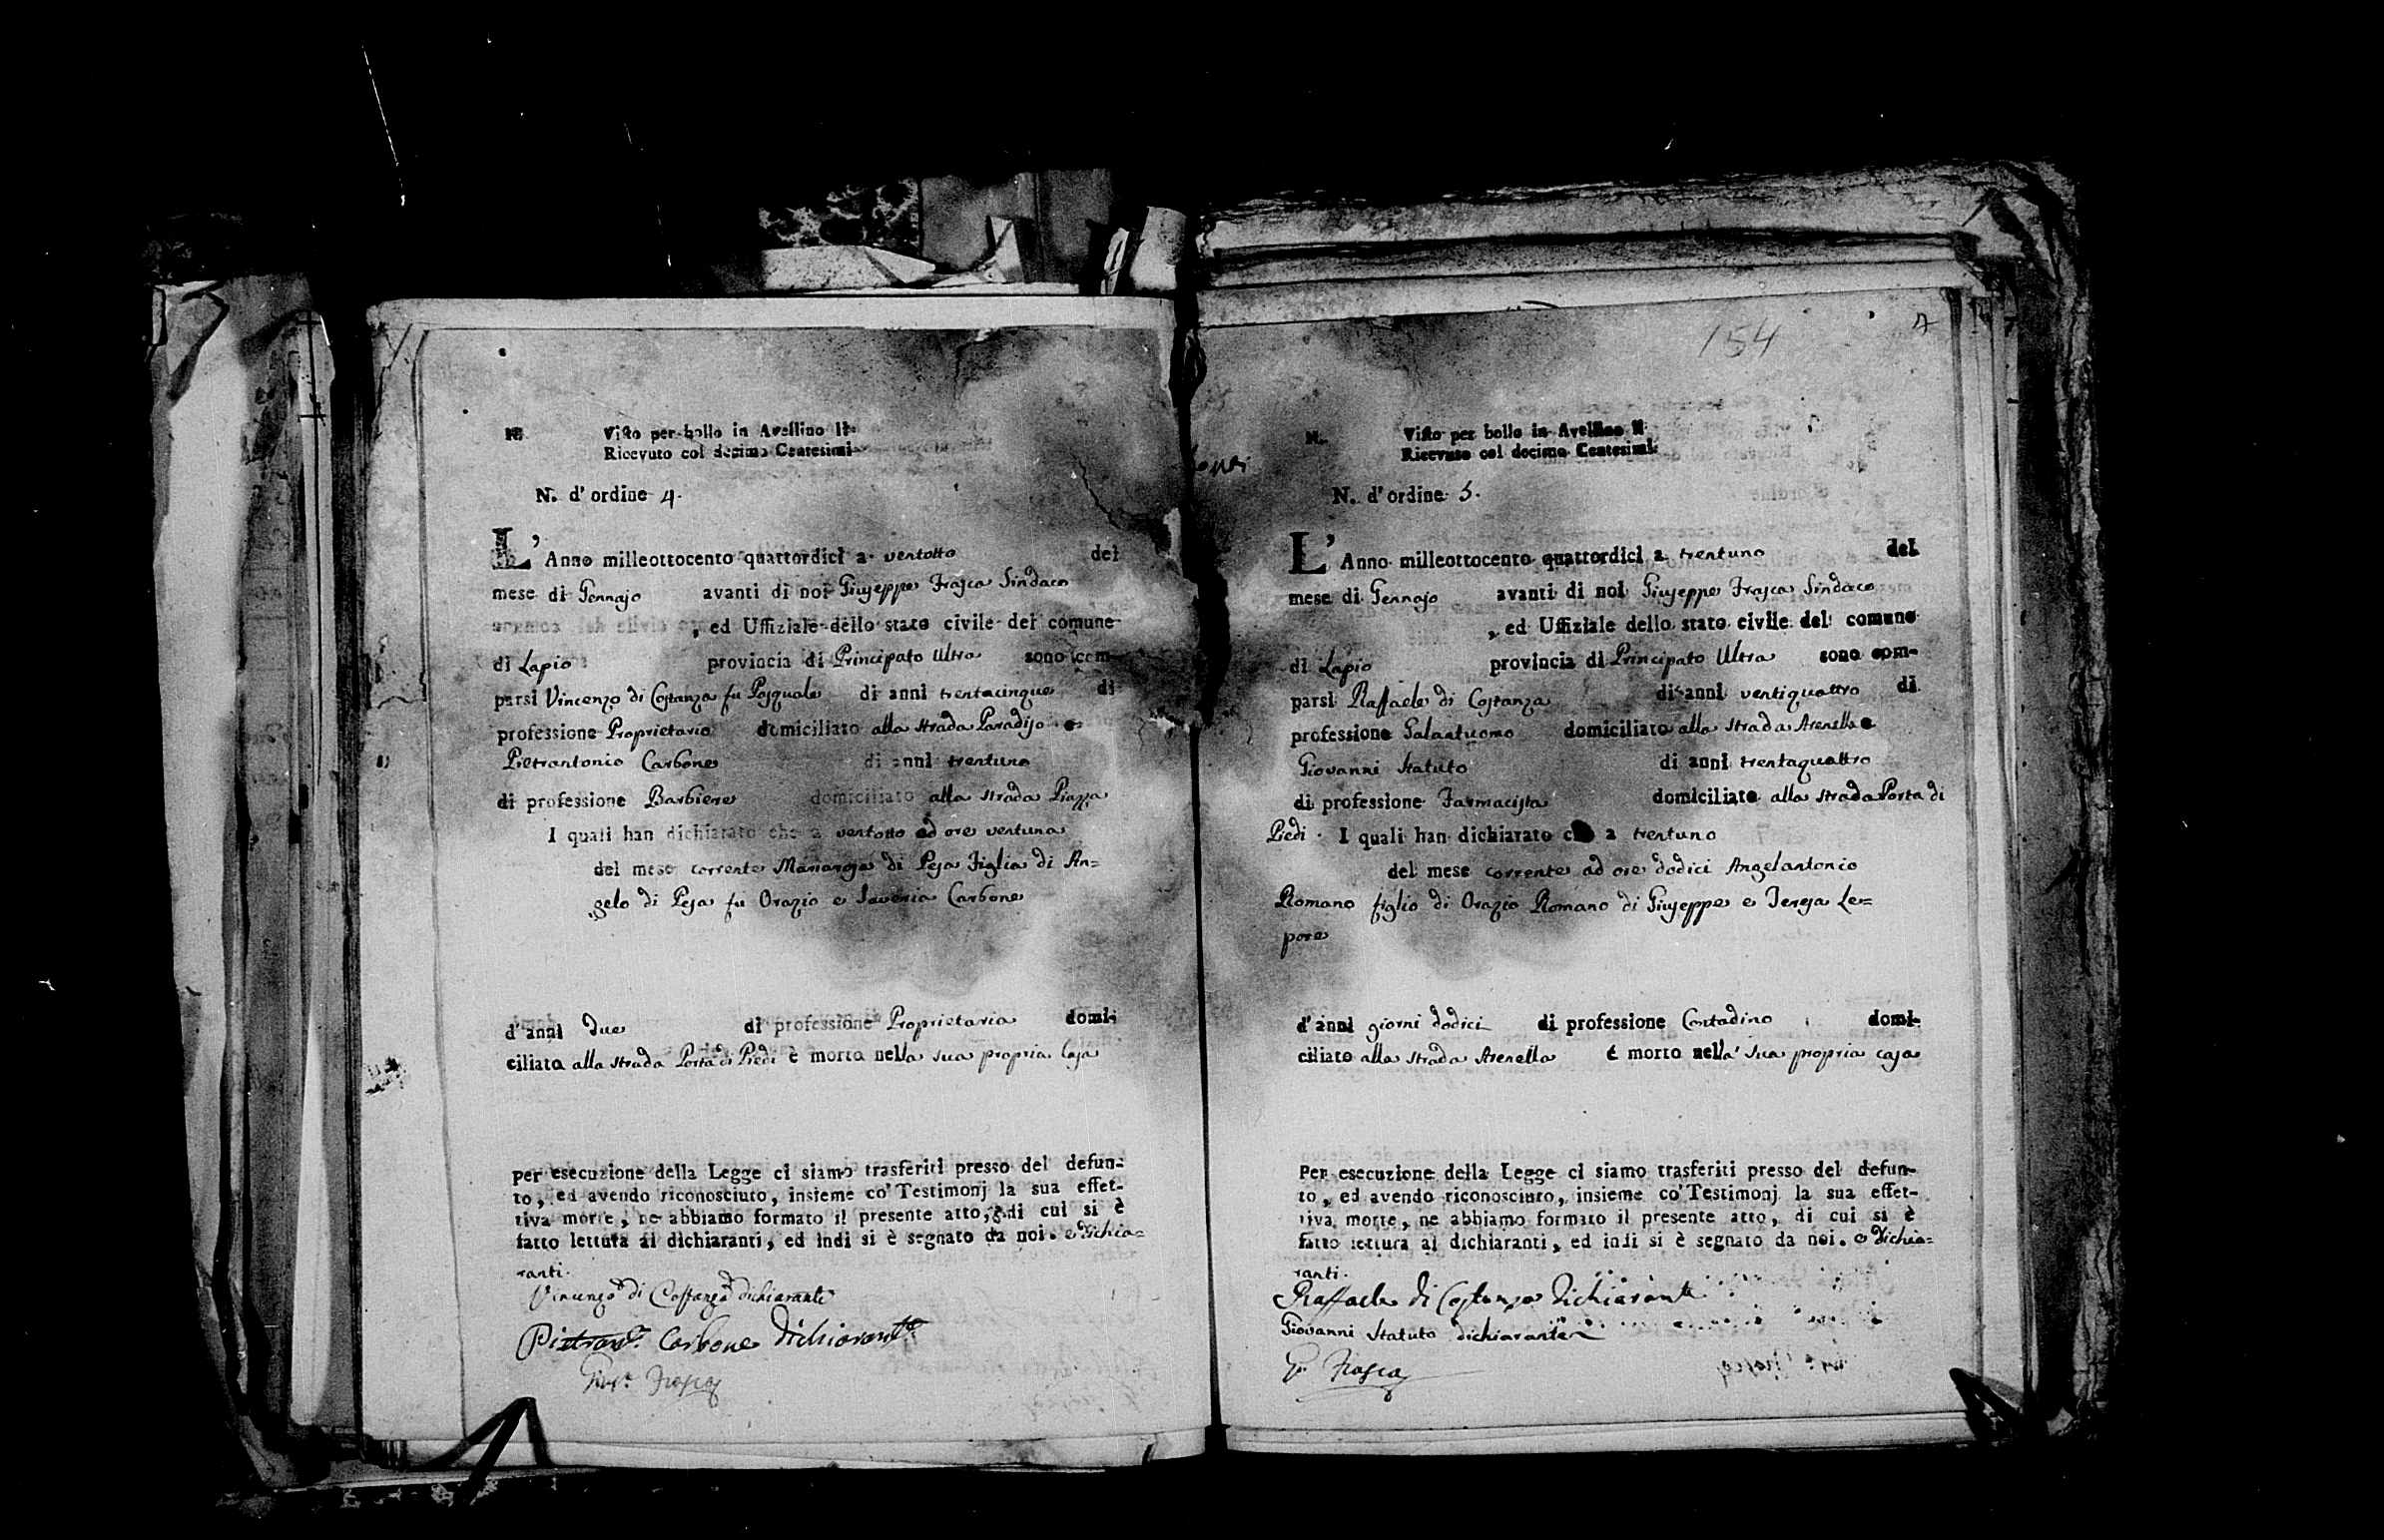 154
N. Visto per bollo in Avellino li
Ricevuto col decimo Centesimi
N. d'ordine 4.
L'Anno milleottocento quattordici a ventotto del
mese di Gennajo avanti di noi Giuseppe Frasca Sindaco
, ed Uffiziale dello stato civile del comune
di Lapio provincia di Principato Ultra sono com-
parsi Vincenzo di Costanza fu Pasquale di anni trentacinque di
professione Proprietario domiciliato alla strada Paradiso e
Pietrantonio Carbone di anni trentuno
di professione Barbiere domiciliato alla strada Piazza
I quali han dichiarato che a ventotto ad ore ventuna
del mese corrente Mariarosa di Pesa Figlia di An=
gelo di Pesa fu Orazio e Saveria Carbone
d'anni due di professione Proprietaria domi-
ciliato alla strada Porta di Piedi è morto nella sua propria Casa
Per esecuzione della Legge ci siamo trasferiti presso del defun-
to, ed avendo riconosciuto, insieme co' Testimonj la sua effet-
tiva morte, ne abbiamo formato il presente atto, di cui si è
fatto lettura ai dichiaranti, ed indi si è segnato da noi. e dichia=
ranti.
Vincenzo di Costanza dichiarante
Pietrant.º Carbone Dichiarante
Gius.e Frasca
N. Visto per bollo in Avellino li
Ricevuto col decimo Centesimi
N. d'ordine 5.
L'Anno milleottocento quattordici a trentuno del
mese di Gennajo avanti di noi Giuseppe Frasca Sindaco
, ed Uffiziale dello stato civile del comune
di Lapio provincia di Principato Ultra sono com-
parsi Raffaele di Costanza di anni ventiquattro di
professione Galantuomo domiciliato alla strada Arenella e
Giovanni Statuto di anni trentaquattro
di professione Farmacista domiciliato alla strada Porta di
Piedi. I quali han dichiarato che a trentuno
del mese corrente ad ore dodici Angelantonio
Romano figlio di Orazio Romano di Giuseppe e Teresa Le=
pore
d'anni giorni dodici di professione Contadino domi-
ciliato alla strada Arenella è morto nella sua propria casa
Per esecuzione della Legge ci siamo trasferiti presso del defun-
to, ed avendo riconosciuto, insieme co' Testimonj la sua effet-
tiva morte, ne abbiamo formato il presente atto, di cui si è
fatto lettura ai dichiaranti, ed indi si è segnato da noi. e dichia=
ranti.
Raffaele di Costanza Dichiarante
Giovanni Statuto dichiarante
G. Frasca